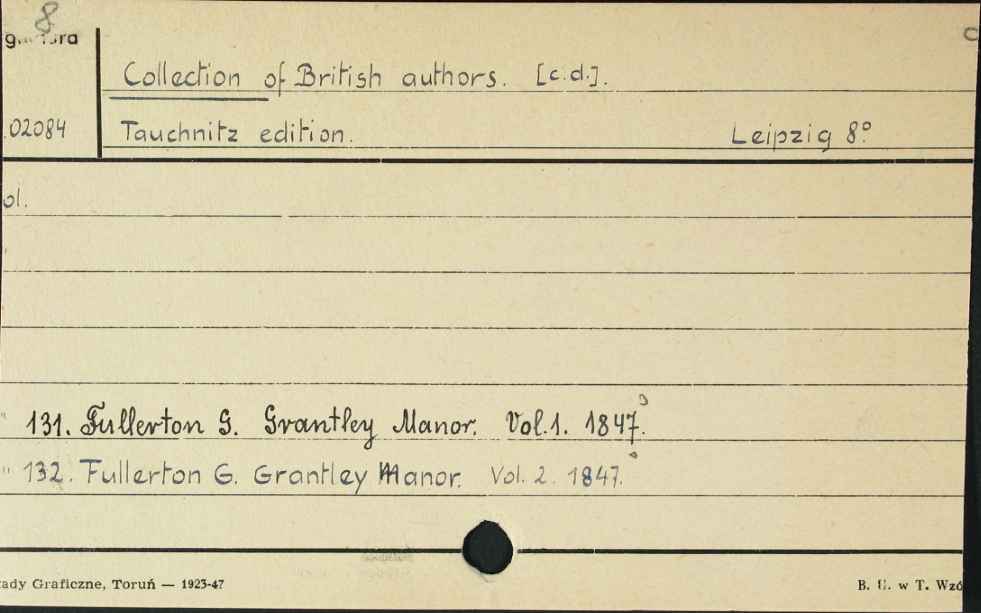 8
Collection of British authors. [c.d.].
02084 Tauchnitz edition. Leipzig 8°
ol.
" 131. Fullerton G. Grantley Manor. Vol.1. 1847.
" 132. Fullerton G. Grantley Manor. Vol. 2. 1847.
ady Graficzne, Toruń — 1923-47 B. U. w T. Wzó